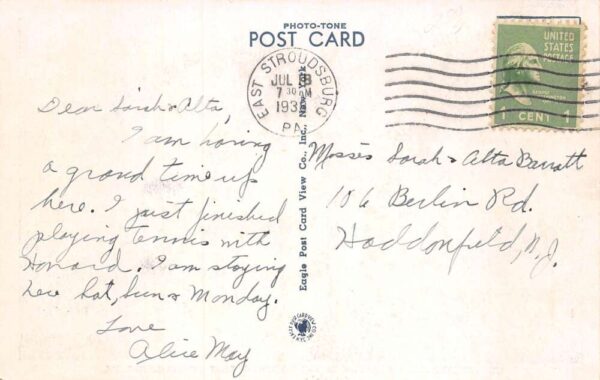 PHOTO-TONE
POST CARD
EAST STROUDSBURG
JUL
7 30 AM
193
PA.
UNITED
STATES
POSTAGE
1 CENT 1
Dear Sarah & Alta,
I am having
a grand time up
here. I just finished
playing tennis with
Howard. I am staying
here Sat, Sun & Monday.
Love
Alice May
Eagle Post Card View Co., Inc., New York
Misses Sarah & Alta Barratt
106 Berlin Rd.
Haddonfield, N.J.